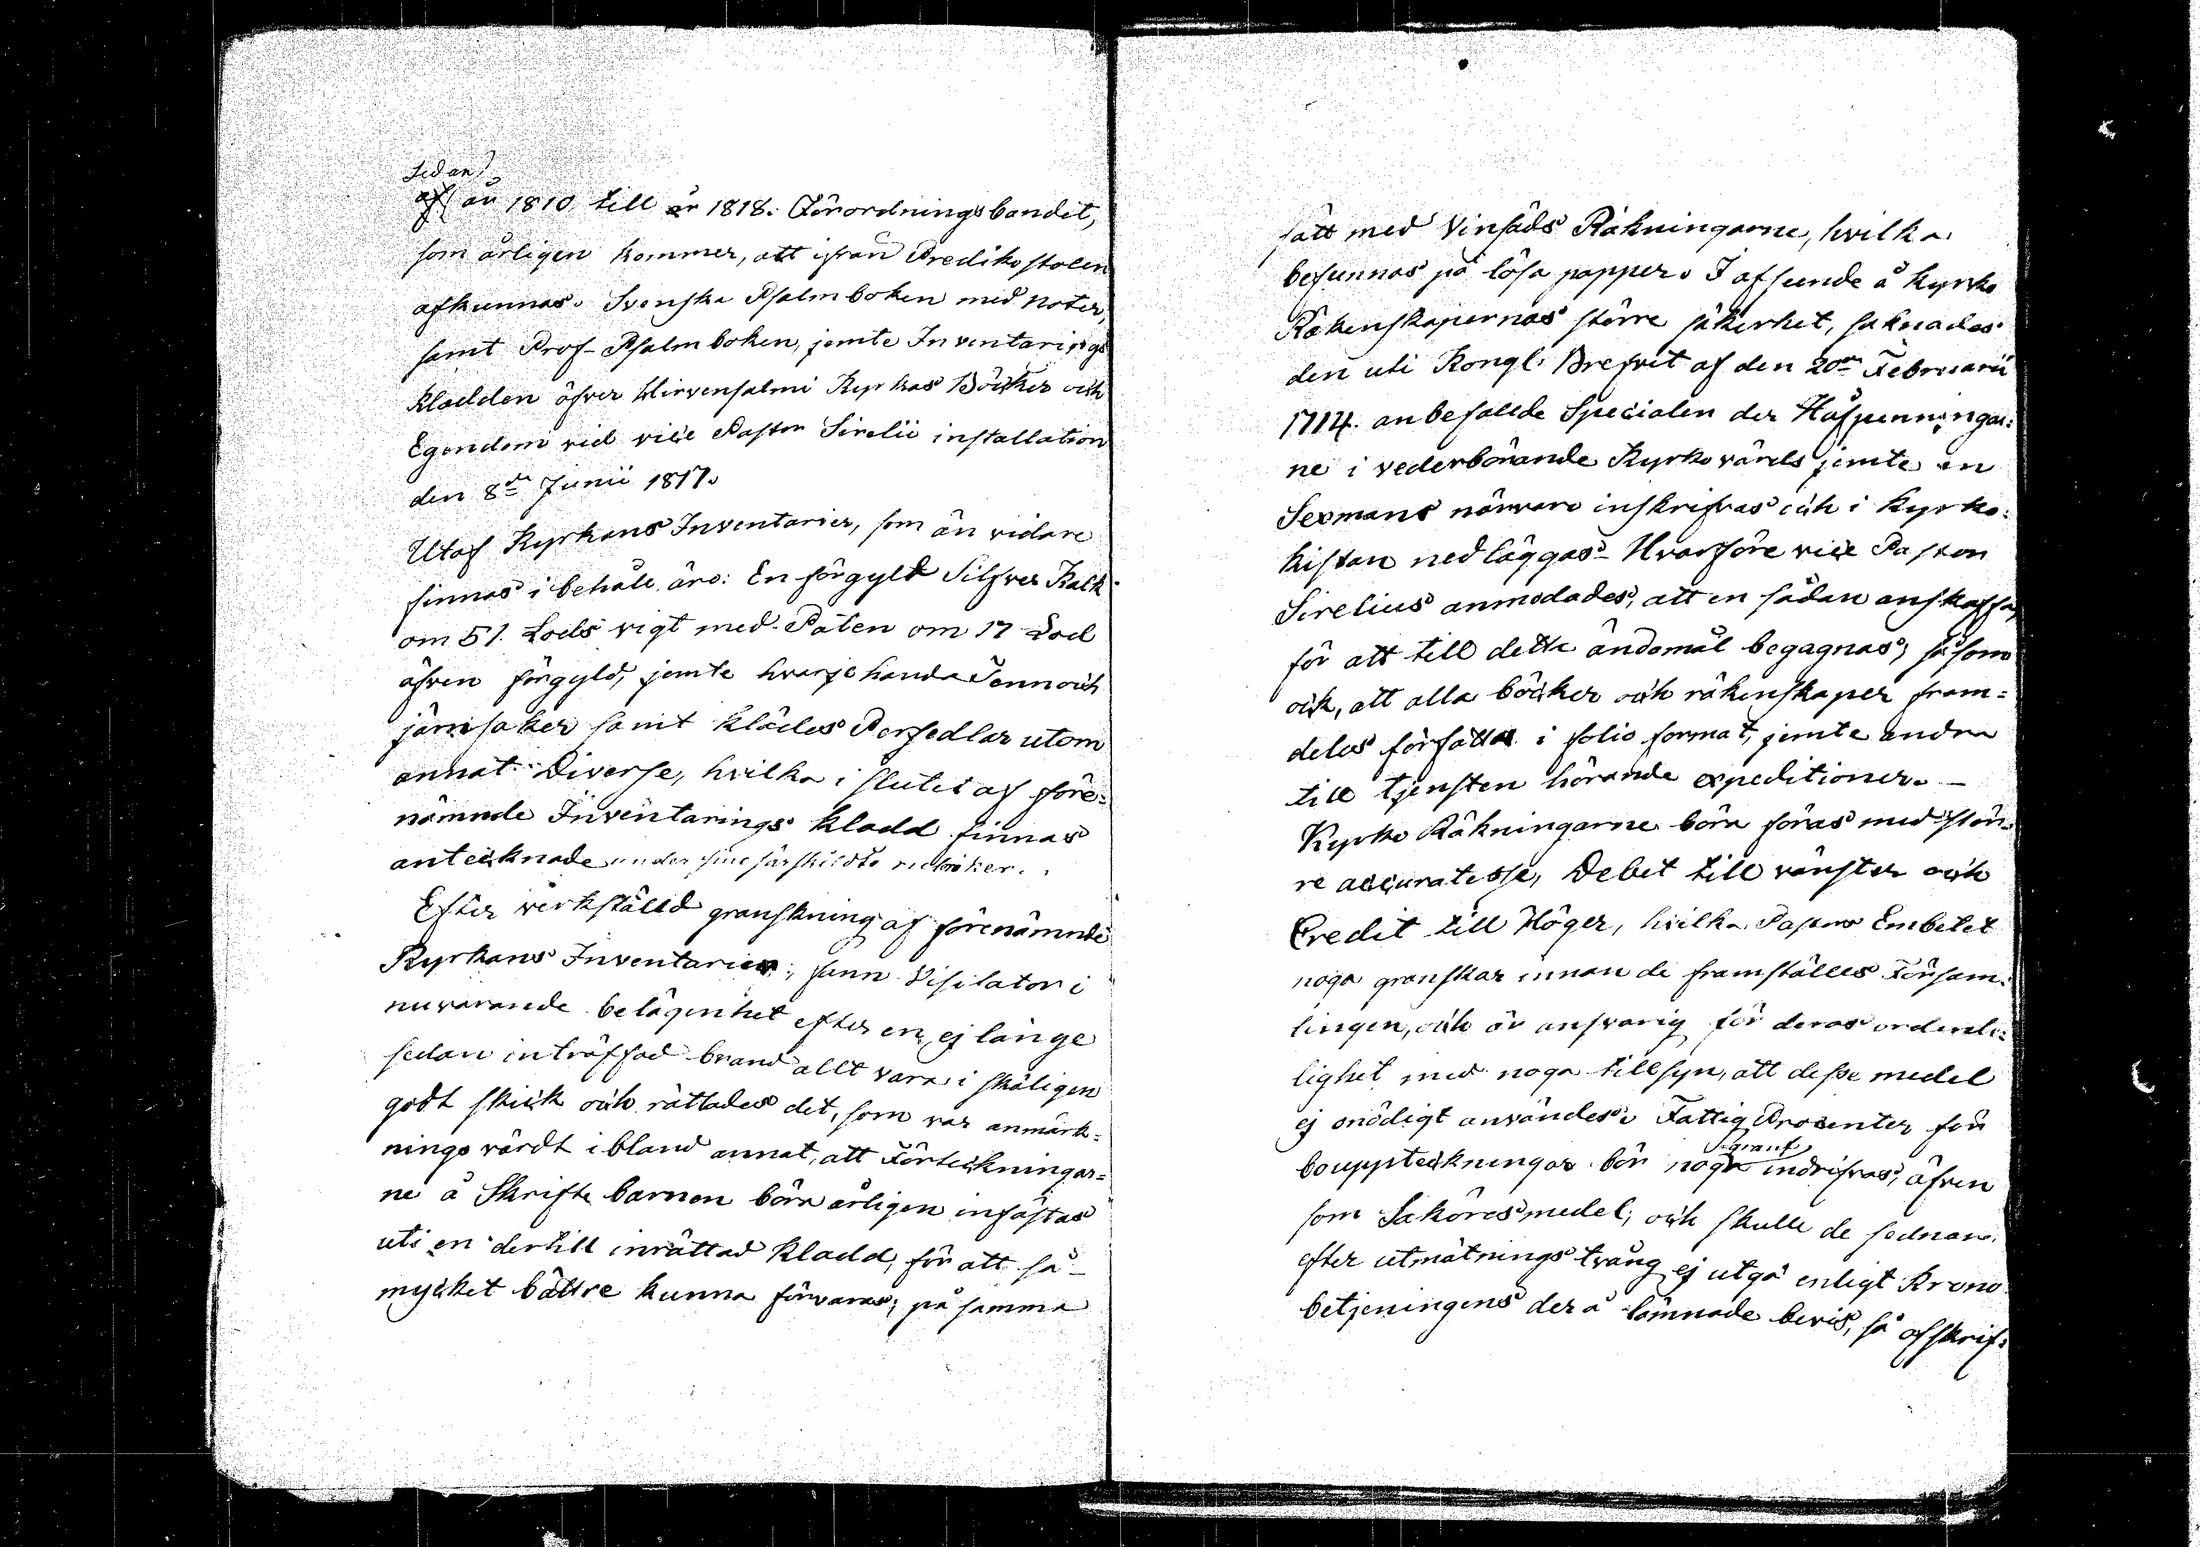 sedan
af år 1810 till år 1818. Förordningsbandet,
som årligen kommer, att ifrån Predikostolen
afkunnas. Svenska Psalmboken med noter,
samt Prof-Psalmboken, jemte Inventarings
kladden öfver Hirvensalmi Kyrkas Böcker och
Egendom vid vice Pastor Sirelii installation
den 8de Junii 1817.
Utaf Kyrkans Inventarier, som än vidare
finnas i behåll äro: En förgyld Silfver Kalk
om 51 Lods vigt med Paten om 17 Lod
äfven förgyld, jemte hvarjehanda Tenn och
järnsaker samt klädes Persedlar utom
annat Diverse, hvilka i slutet af före-
nämnde Inventarings kladd finnas
antecknade under sine särskildte rubriker.
Efter verkställd granskning af förenämnde
Kyrkans Inventarier, fann Visitator i
nuvarande belägenhet efter en ej länge
sedan inträffad brand allt vara i skäligen
godt skick och rättades det, som var anmärk-
nings värdt ibland annat, att Förteckningar-
ne å Skrifte barnen böra årligen infästas
uti en dertill inrättad kladd, för att så
mycket bättre kunna förvaras; på samma
sätt med Vinsäds Räkningarne, hvilka
befunnos på lösa papper. I afseende å Kyrko
Räkenskapernas större säkerhet, saknades
den uti Kongl. Brefvet af den 20de Februarii
1714. anbefallde Specialen der Håfpenningar-
ne i vederbörande Kyrkovärds jemte en
Sexmans närvaro inskrifvas och i Kyrko-
kistan nedläggas - Hvarföre vice Pastor
Sirelius anmodades, att en sådan anskaffa,
för att till detta ändamål begagnas; såsom
ock, att alla böcker och räkenskaper fram-
deles författas i folio format, jemte andra
till tjensten hörande expeditioner. -
Kyrko Räkningarne böra föras med stör-
re accuratesse, Debet till vänster och
Credit till Höger, hvilka Pastors Embetet
noga granskar innan de framställes Försam-
lingen, och är ansvarig för deras ordent-
lighet med noga tillsyn, att desse medel
ej onödigt användes. Fattig Procenter för
grant
bouppteckningar bör noga indrifvas, äfven
som Saköresmedel; och skulle de sednare
efter utmätnings tvång ej utgå enligt Krono
betjeningens derå lämnade bevis, så afskrif-